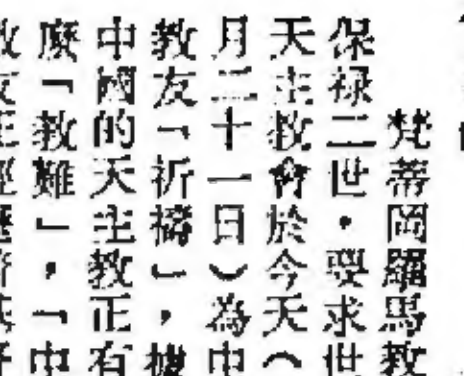 梵蒂岡羅馬教
保禄二世・要求世
天主教會於今天（
月二十一日）為中
教友「祈禱」，
中國的天主教正有
麼「教難」，「中